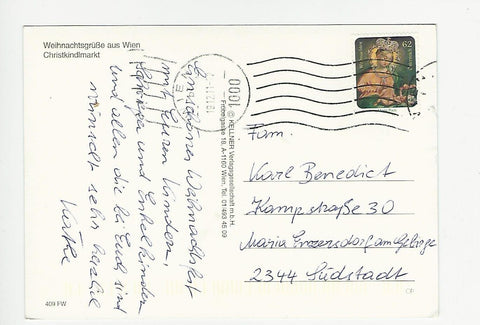 Weihnachtsgrüße aus Wien
Christkindlmarkt
Weihnachtsfest
mit Euren Kindern,
und Enkelkindern
und allen die bei Euch sind
wünscht sehr herzlich
Käthe
409 FW
© KELLNER Verlagsgesellschaft m.b.H.
A-1160 Wien, Tel. 01/493 48 09
1000
62
Fam.
Karl Benedict
Kampstraße 30
Maria Enzersdorf am Gebirge
2344 Südstadt